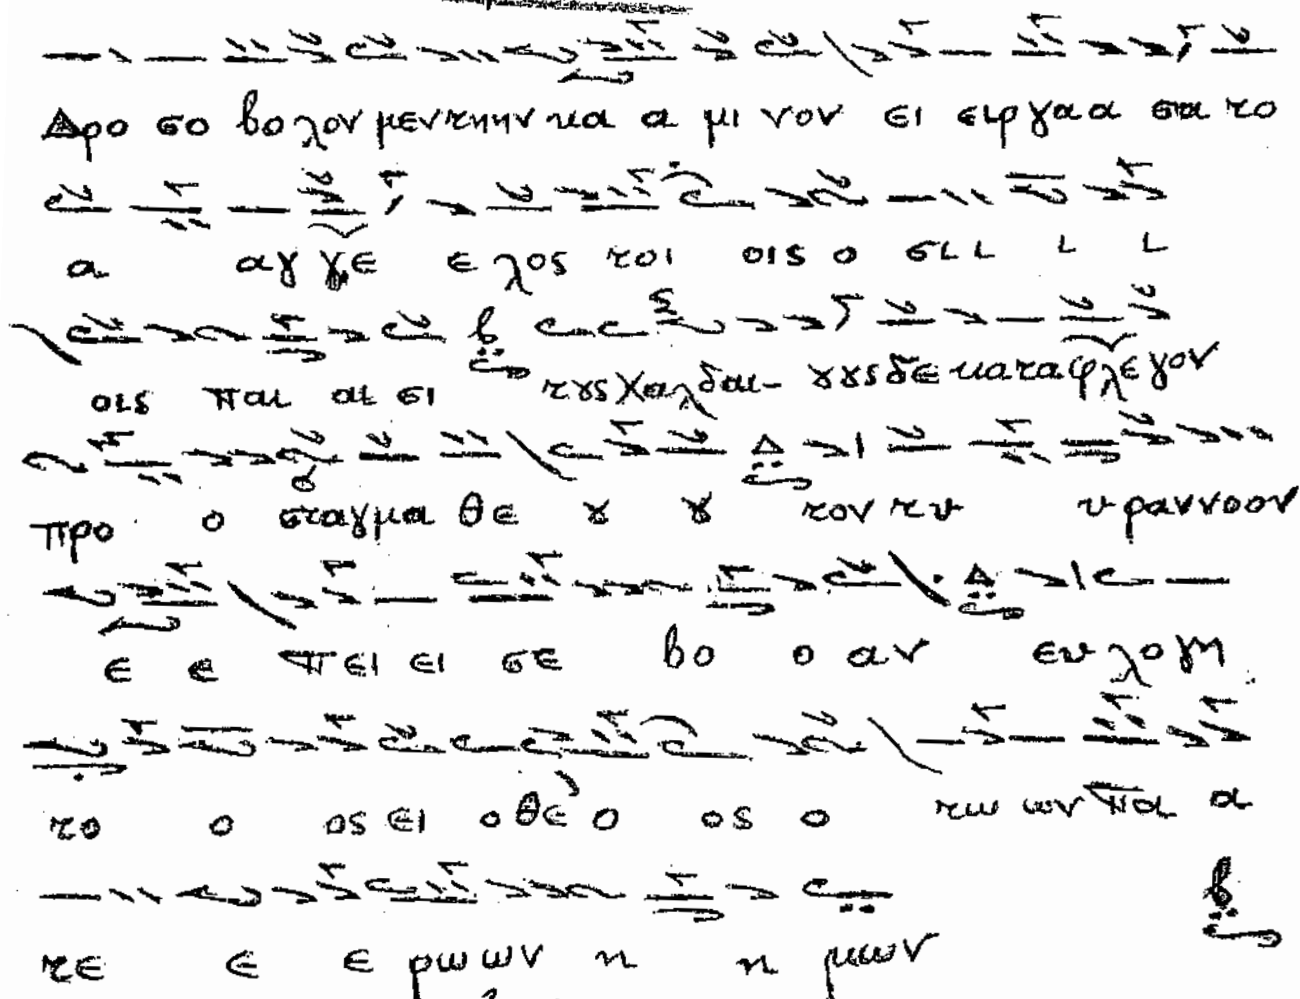 Δρο σο βο λον μεν την ην κα α μι νον ει ειρ γα α σα το
α αγ γε ε λος τοι οις ο σι ι ι ι ι
οις παι αι σι τȣς Χαλ δαι ȣ ȣς δε κα τα φλε γον
προ ο σταγ μα θε ȣ ȣ τον τυ υ ραν νο ον
ε ε πει ει σε βο ο αν ευ λο γη
το ο ος ει ο θε ο ος ο τω ων πα α
τε ε ε ρω ων η η μων